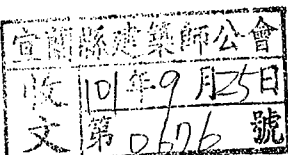 宜蘭縣建築師公會
收文 101年9月25日
第0676號